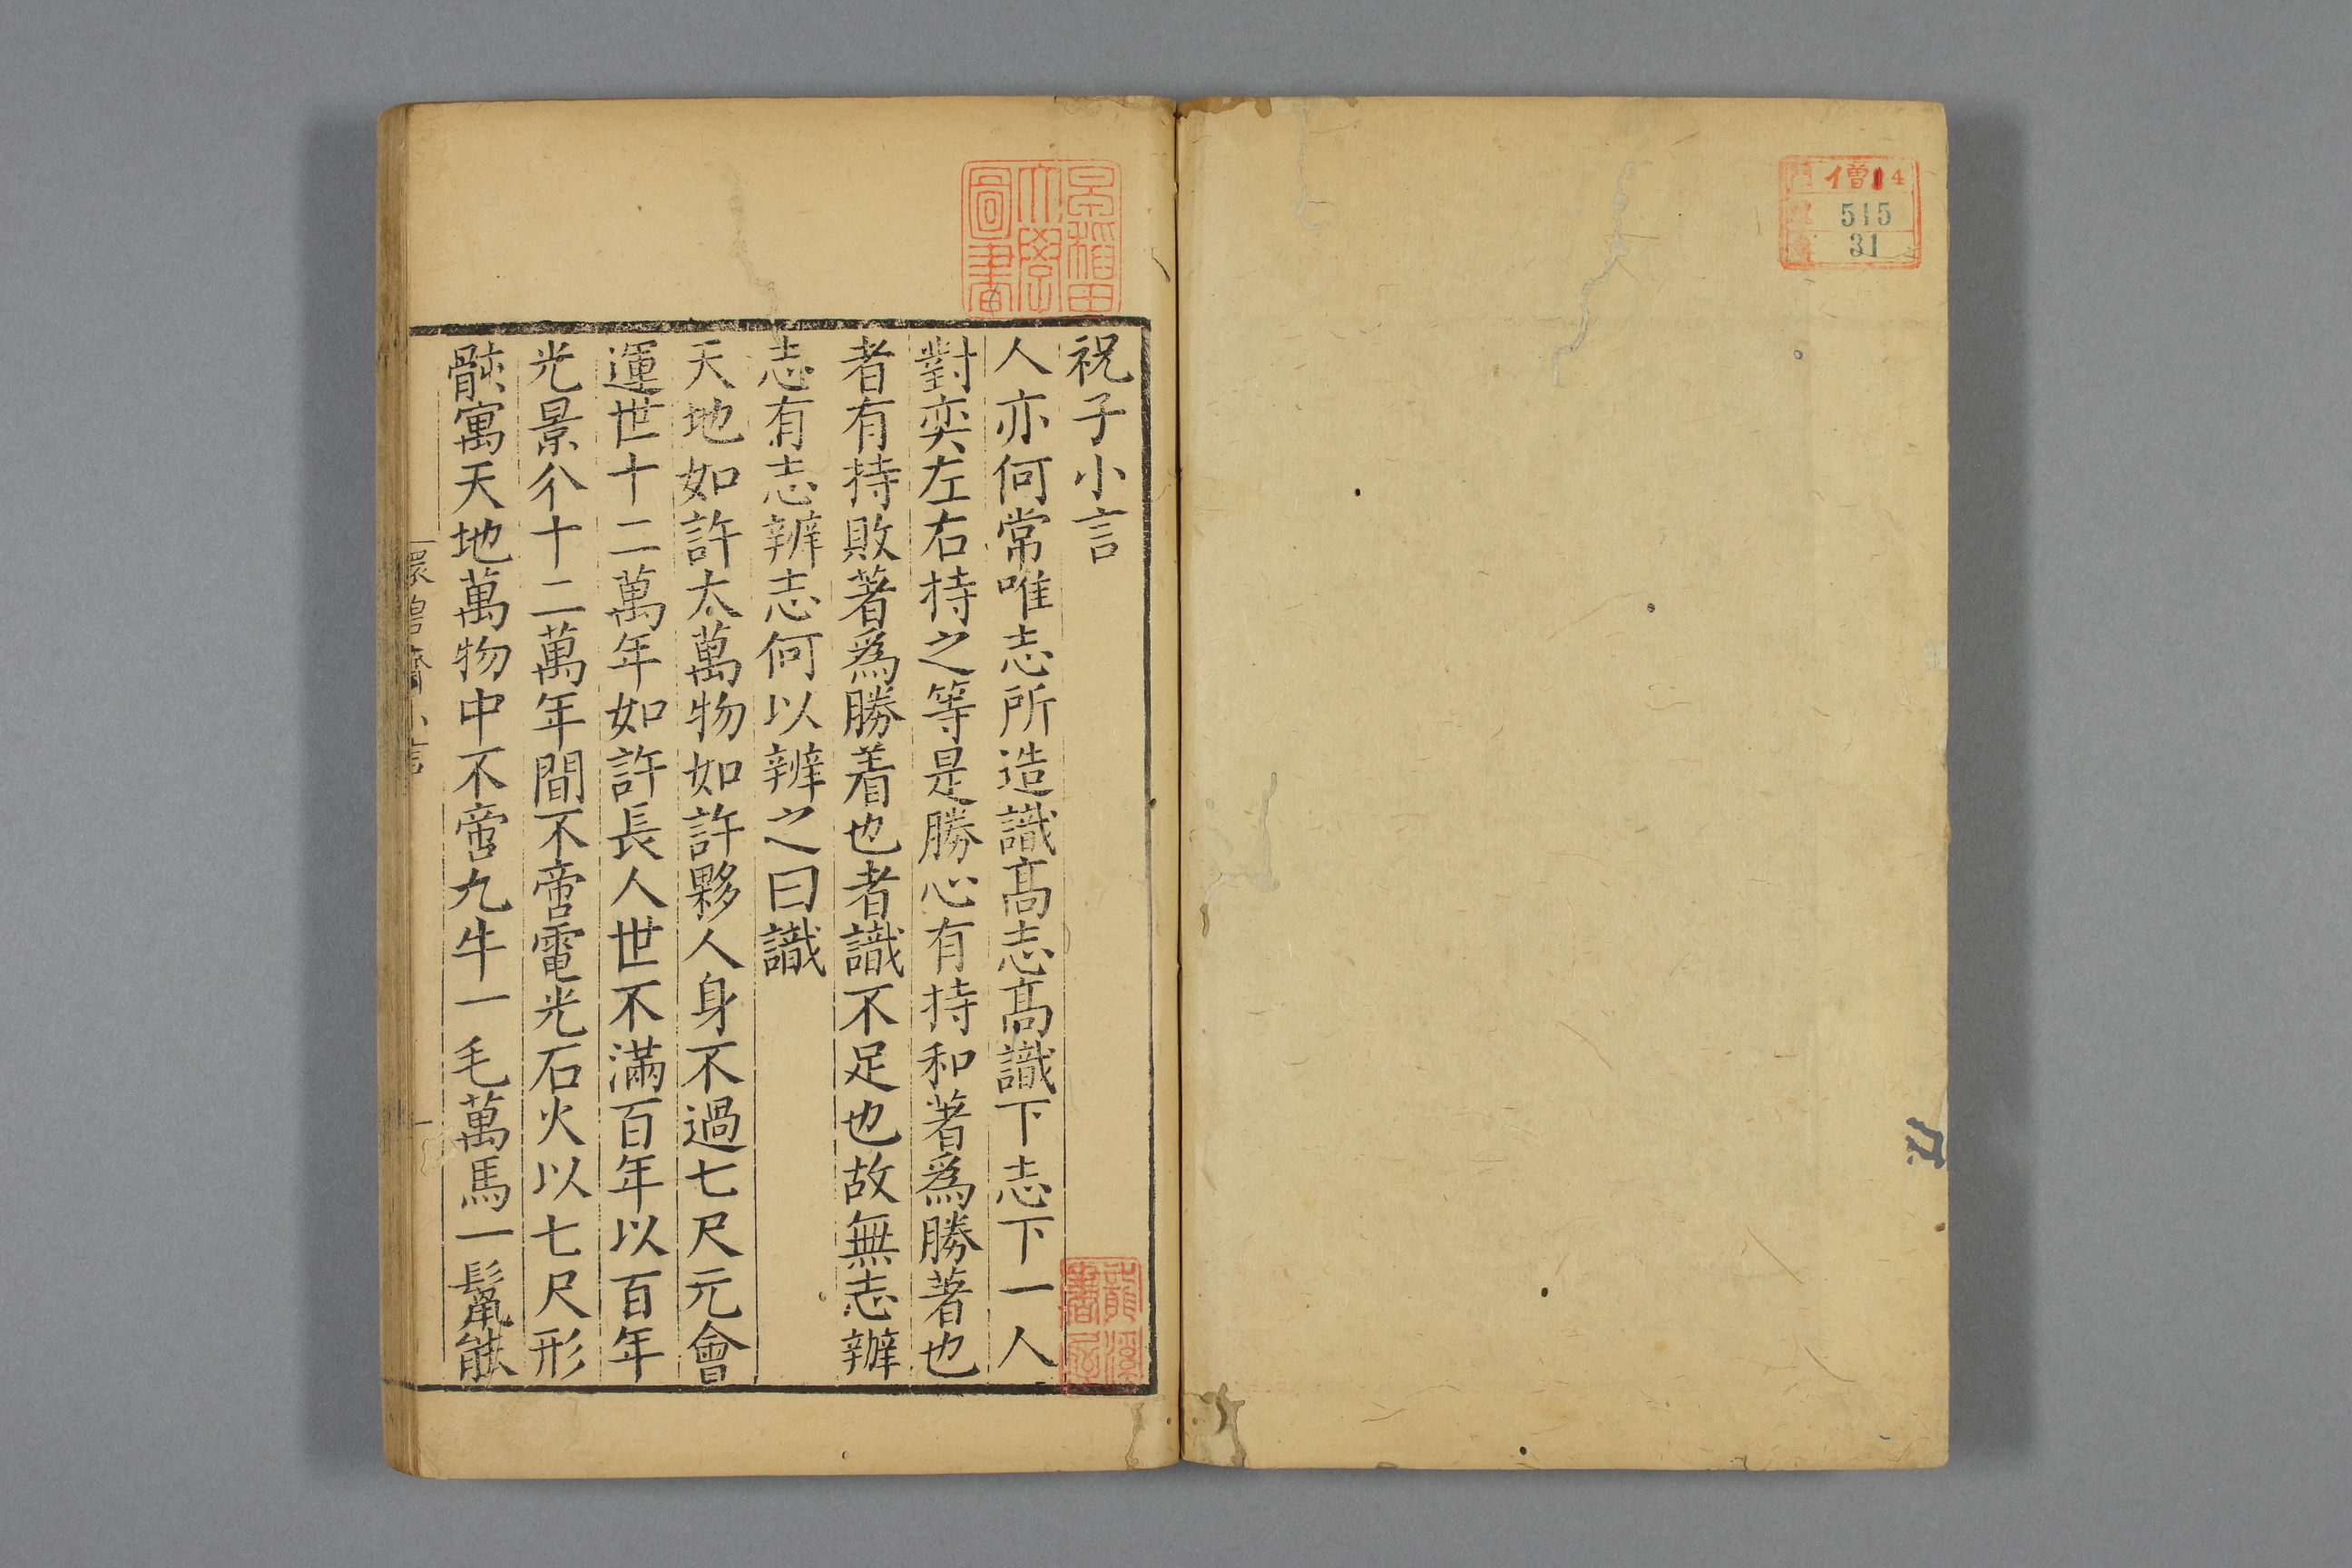 僧 4
515
31
早稲田
大學
圖書
祝子小言
人亦何常唯志所造識高志高識下志下一人
對奕左右持之等是勝心有持和著爲勝著也
者有持敗著爲勝着也者識不足也故無志辦
志有志辨志何以辨之曰識
天地如許大萬物如許夥人身不過七尺元會
運世十二萬年如許長人世不滿百年以百年
光景介十二萬年間不啻電光石火以七尺形
骸寓天地萬物中不啻九牛一毛萬馬一鬣能
龍溪
書屋
環碧齋小言
一